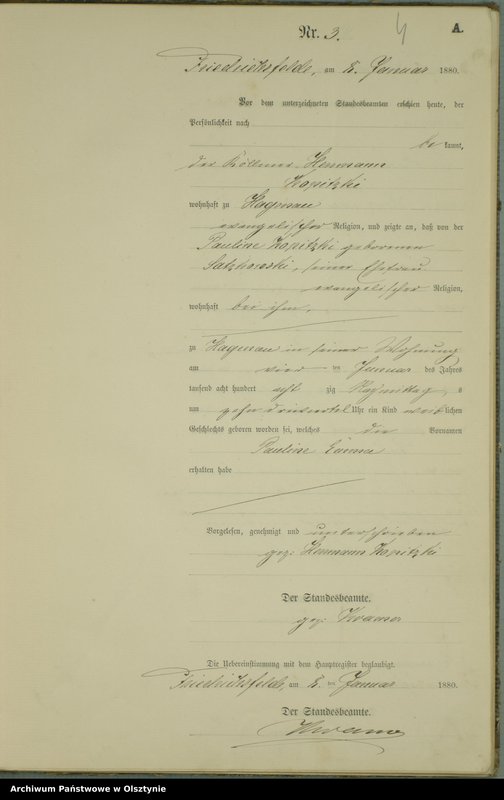 Nr. 3.
4
A.
Friedrichsfelde, am 8. Januar 1880.
Vor dem unterzeichneten Standesbeamten erschien heute, der
Persönlichkeit nach
be kannt,
der Kölmer Hermann
Kopitzki
wohnhaft zu Hagenau
evangelischer Religion, und zeigte an, daß von der
Pauline Kopitzki geborenen
seiner Ehefrau
evangelischer Religion,
wohnhaft bei ihm,
zu Hagenau in seiner Wohnung
am vier ten Januar des Jahres
tausend acht hundert acht zig Nachmittag s
um zehn dreiviertel Uhr ein Kind weib lichen
Geschlechts geboren worden sei, welches die Vornamen
Pauline Emma
erhalten habe
Vorgelesen, genehmigt und unterschrieben
gez: Hermann Kopitzki
Der Standesbeamte.
gez:
Die Uebereinstimmung mit dem Hauptregister beglaubigt.
Friedrichsfelde, am 8. ten Januar 1880.
Der Standesbeamte.
Archiwum Państwowe w Olsztynie